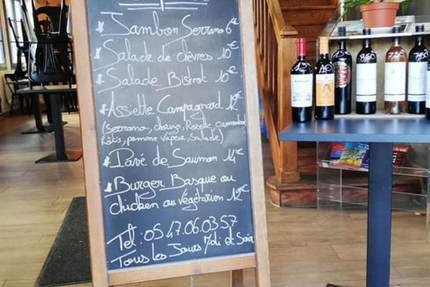 Jambon Serrano 6€
Salade de Chèvres 10€
Salade Bistrot 10€
Assiette Campagnard 12€
(Serrano, chorizo, Rosette, camembert,
Patis, pomme vapeur, Salade)
Pavé de Saumon 14€
Burger Basque ou
chicken ou végétation 12€
Tel: 05 47.06.03.57
Tous les Jours Midi et Soir